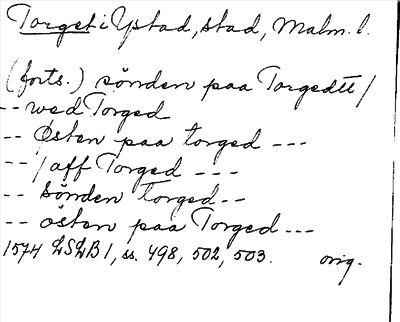 Torget i Ystad, stad, Malm. l.
(forts.) sönden paa Torgedtt /
-- wed Torged
-- Østen paa torged ---
-- / aff Torged ---
-- sönden torged --
-- østen paa Torged ---
1574 LSLB 1, ss. 498, 502, 503. orig.